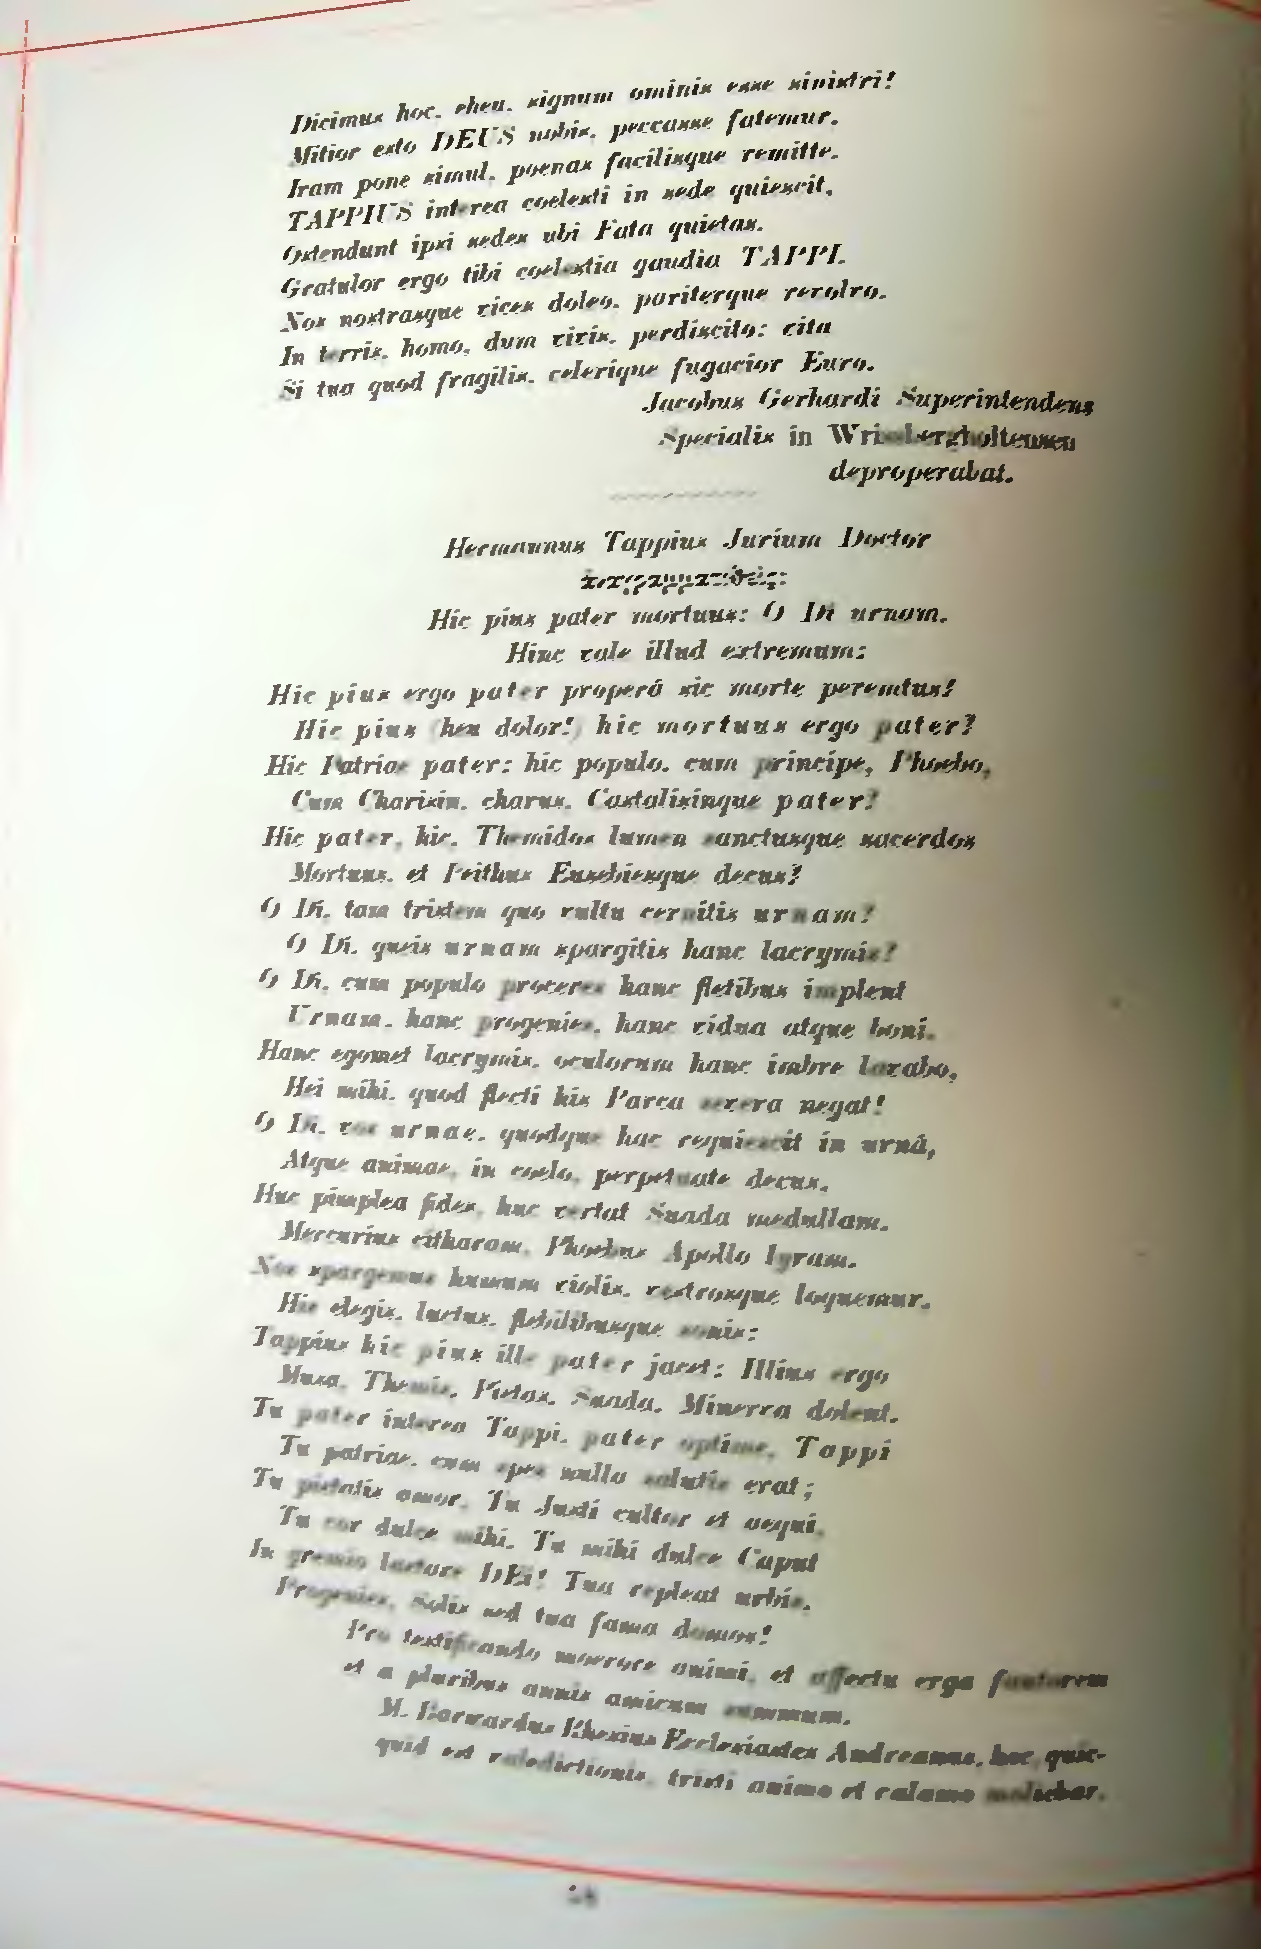 Dicimus hoc, eheu, signum ominis esse sinistri!
Mitior esto DEUS nobis, peccasse fatemur,
Iram pone simul, poenas facilisque remitte.
TAPPIUS interea coelesti in sede quiescit,
Ostendunt ipsi sedes ubi Fata quietas.
Gratulor ergo tibi coelestia gaudia TAPPI.
Nos nostrasque vices doleo, pariterque revolvo.
In terris, homo, dum vivis, perdiscito: vita
Si tua quod fragilis, celerique fugacior Euro.
Jacobus Gerhardi Superintendens
Specialis in Wrisbergholtensen
deproperabat.
Hermannus Tappius Jurium Doctor
Hic pius pater mortuus: O Di urnam.
Hinc vale illud extremum:
Hic pius ergo pater properâ sic morte peremtus!
Hic pius (heu dolor!) hic mortuus ergo pater?
Hic Patriae pater: hic populo, cum principe, Phoebo,
Cum Charisin, charus, Castalisinque pater?
Hic pater, hic, Themidos lumen sanctusque sacerdos
Mortuus, et Peithus Eusebiesque decus?
O Di, tam tristem quo vultu cernitis urnam?
O Di, queis urnam spargitis hanc lacrymis?
O Di, cum populo proceres hanc fletibus implent
Urnam, hanc progenies, hanc vidua atque boni.
Hanc egomet lacrymis, oculorum hanc imbre lavabo,
Hei mihi, quod flecti his Parca severa negat!
O Di, vos urnae, quodque hac requiescit in urnâ,
Atque animae, in coelo, perpetuate decus.
Huc pimplea fides, huc vertat Suada medullam.
Mercurius citharam, Phoebus Apollo lyram.
Nos spargemus humum violis, vestrosque loquemur,
His elegis, luctus, flebilibusque sonis:
Tappius hic pius ille pater jacet: Illius ergo
Musa, Themis, Pietas, Suada, Minerva dolent.
Tu pater interea Tappi, pater optime, Tappi
Tu patriae, cum spes nulla salutis erat;
Tu pietatis amor, Tu Justi cultor et aequi,
Tu cor dulce mihi, Tu mihi dulce Caput
In gremio laetare DEi! Tua repleat urbis,
Progenies, Solis sed tua fama domos!
Pro testificando moerore animi, et affectu erga fautorem
et a pluribus annis amicum summum.
M. Barwardus Rhesius Ecclesiastes Andreanus, hoc, quic-
quid est valedictionis, tristi animo et calamo moliebar.